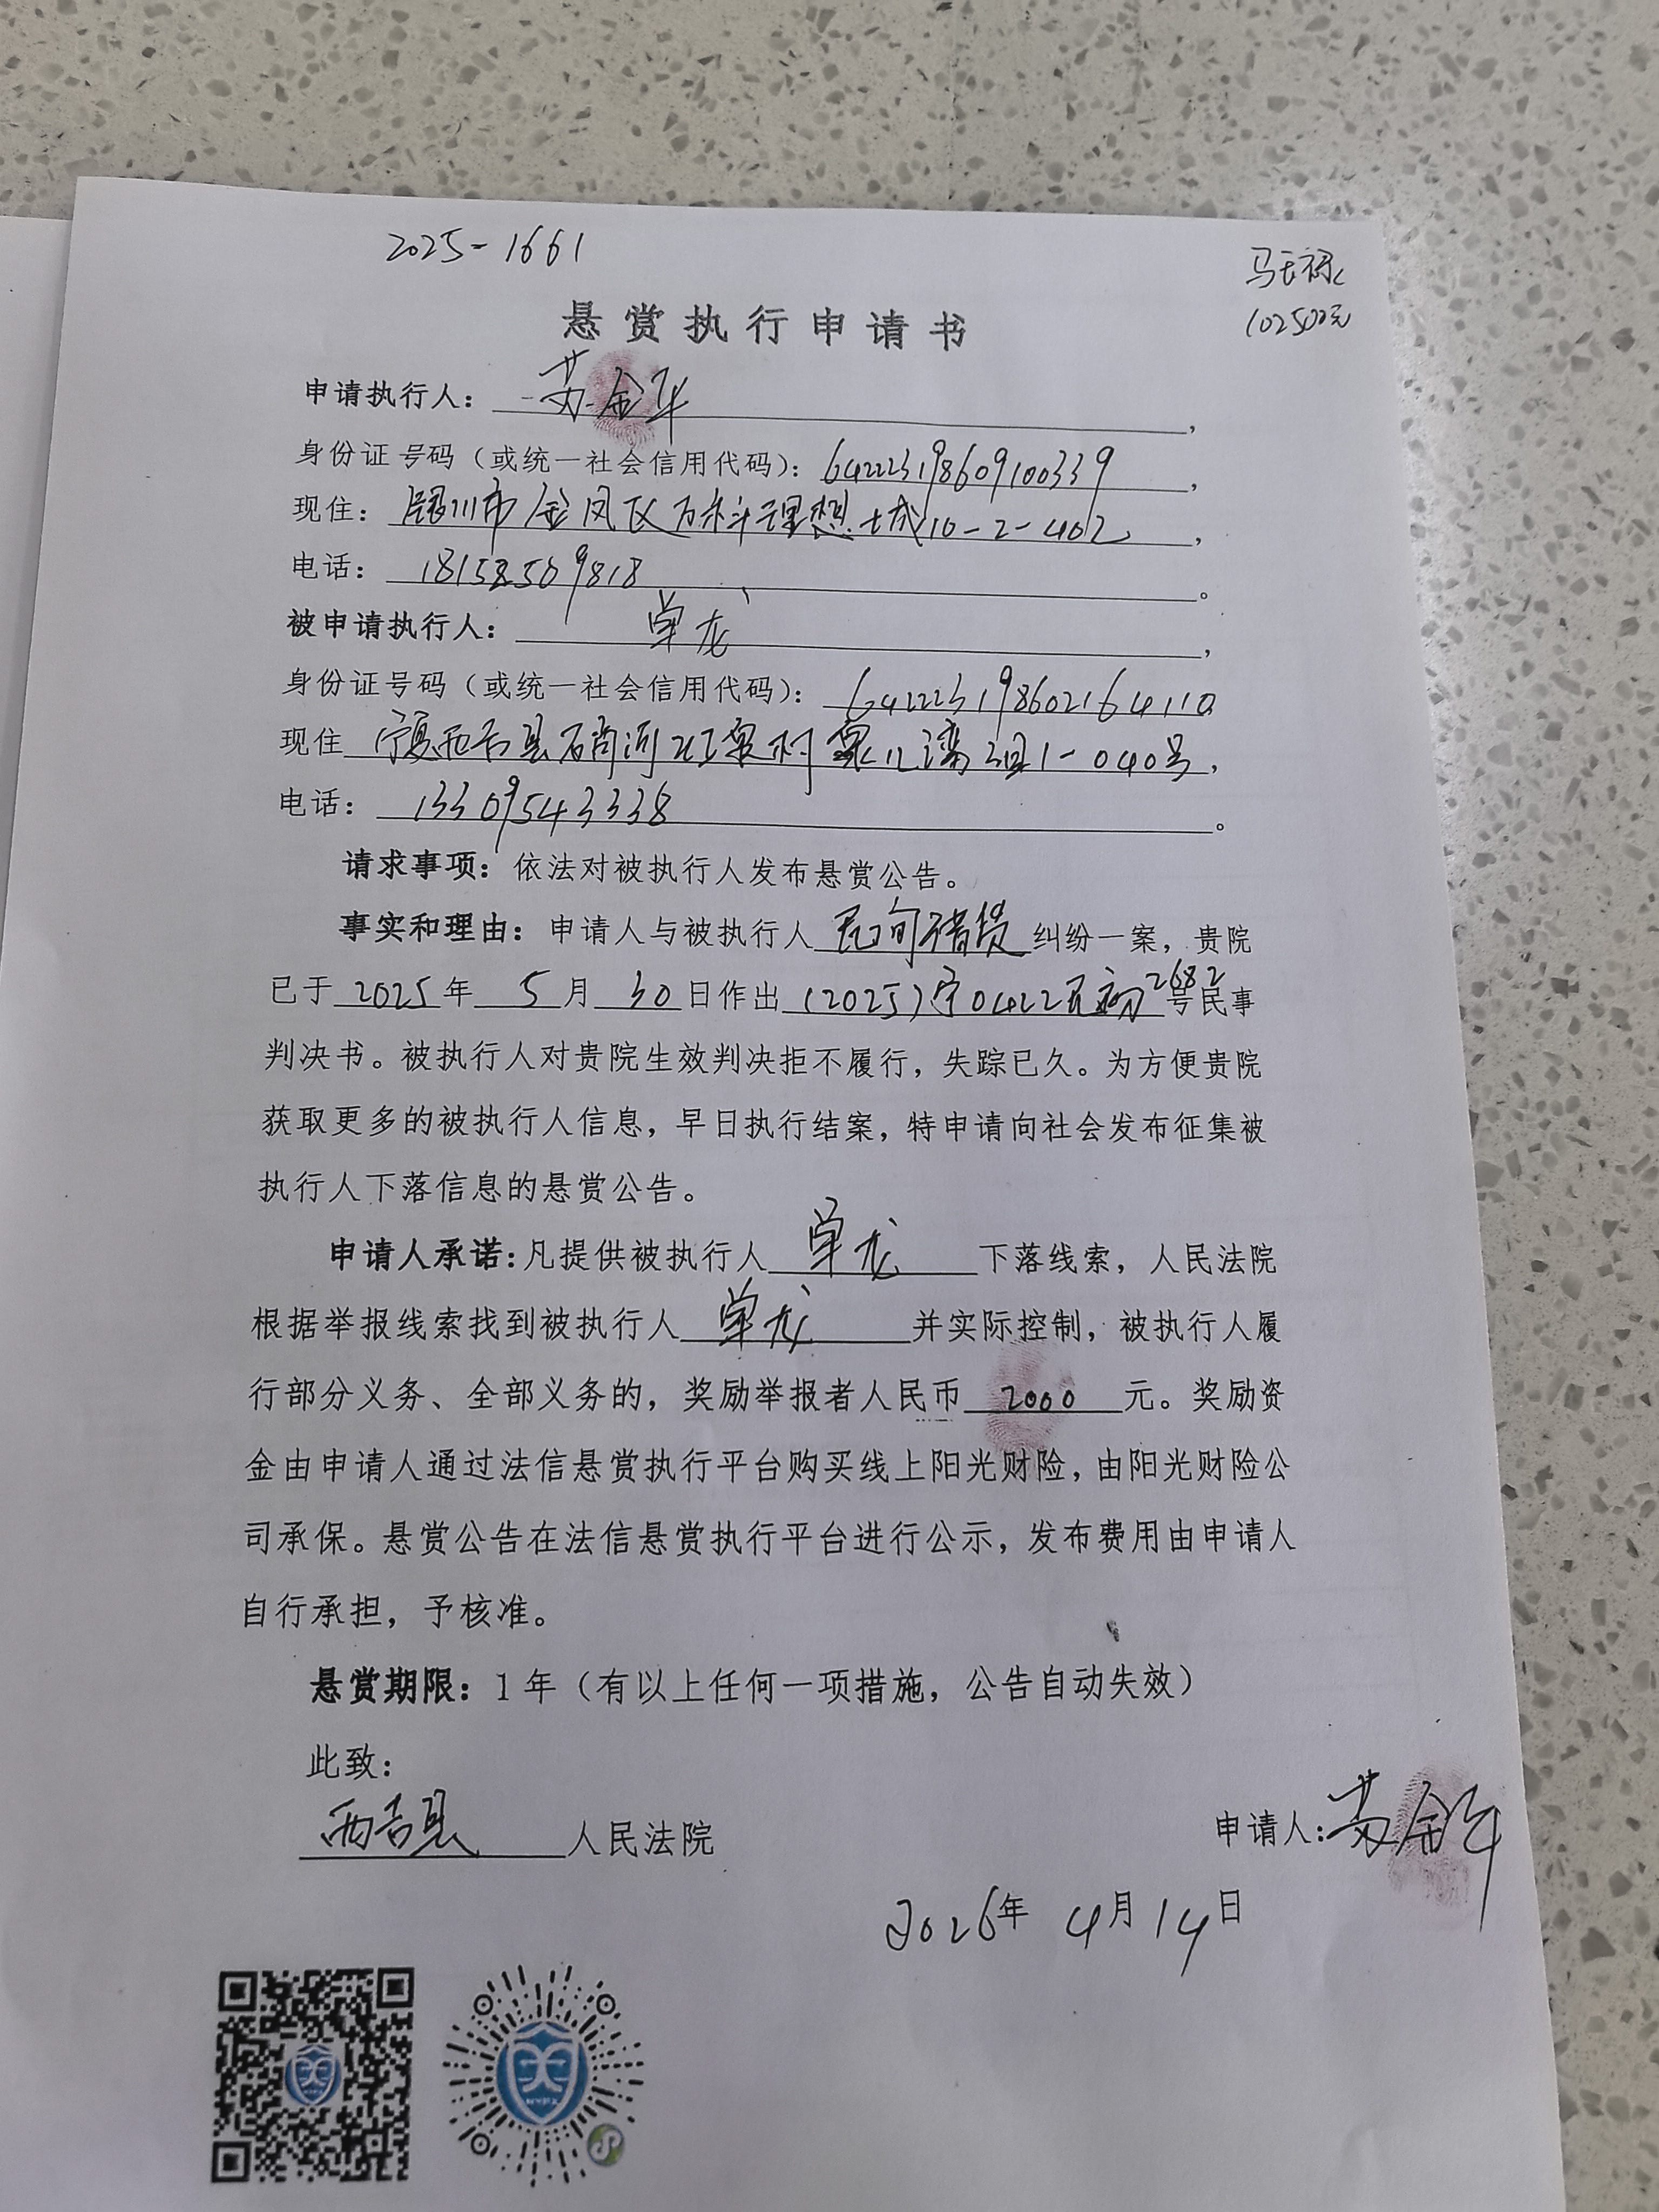 2025-1661
马天禄
102500元
悬赏执行申请书
申请执行人：苏金军，
身份证号码（或统一社会信用代码）：642223198609100339，
现住：银川市金凤区万科理想城10-2-402，
电话：18152509818。
被申请执行人：单龙，
身份证号码（或统一社会信用代码）：642223198602164110
现住 宁夏西吉县硝河红泉村 泉儿湾组1-040号，
电话：13309543338。
请求事项：依法对被执行人发布悬赏公告。
事实和理由：申请人与被执行人民间借贷纠纷一案，贵院
已于2025年5月30日作出（2025）宁0422民初2682号民事
判决书。被执行人对贵院生效判决拒不履行，失踪已久。为方便贵院
获取更多的被执行人信息，早日执行结案，特申请向社会发布征集被
执行人下落信息的悬赏公告。
申请人承诺：凡提供被执行人单龙下落线索，人民法院
根据举报线索找到被执行人单龙并实际控制，被执行人履
行部分义务、全部义务的，奖励举报者人民币2000元。奖励资
金由申请人通过法信悬赏执行平台购买线上阳光财险，由阳光财险公
司承保。悬赏公告在法信悬赏执行平台进行公示，发布费用由申请人
自行承担，予核准。
悬赏期限：1年（有以上任何一项措施，公告自动失效）
此致：
西吉县人民法院
申请人：苏金军
2026年4月14日